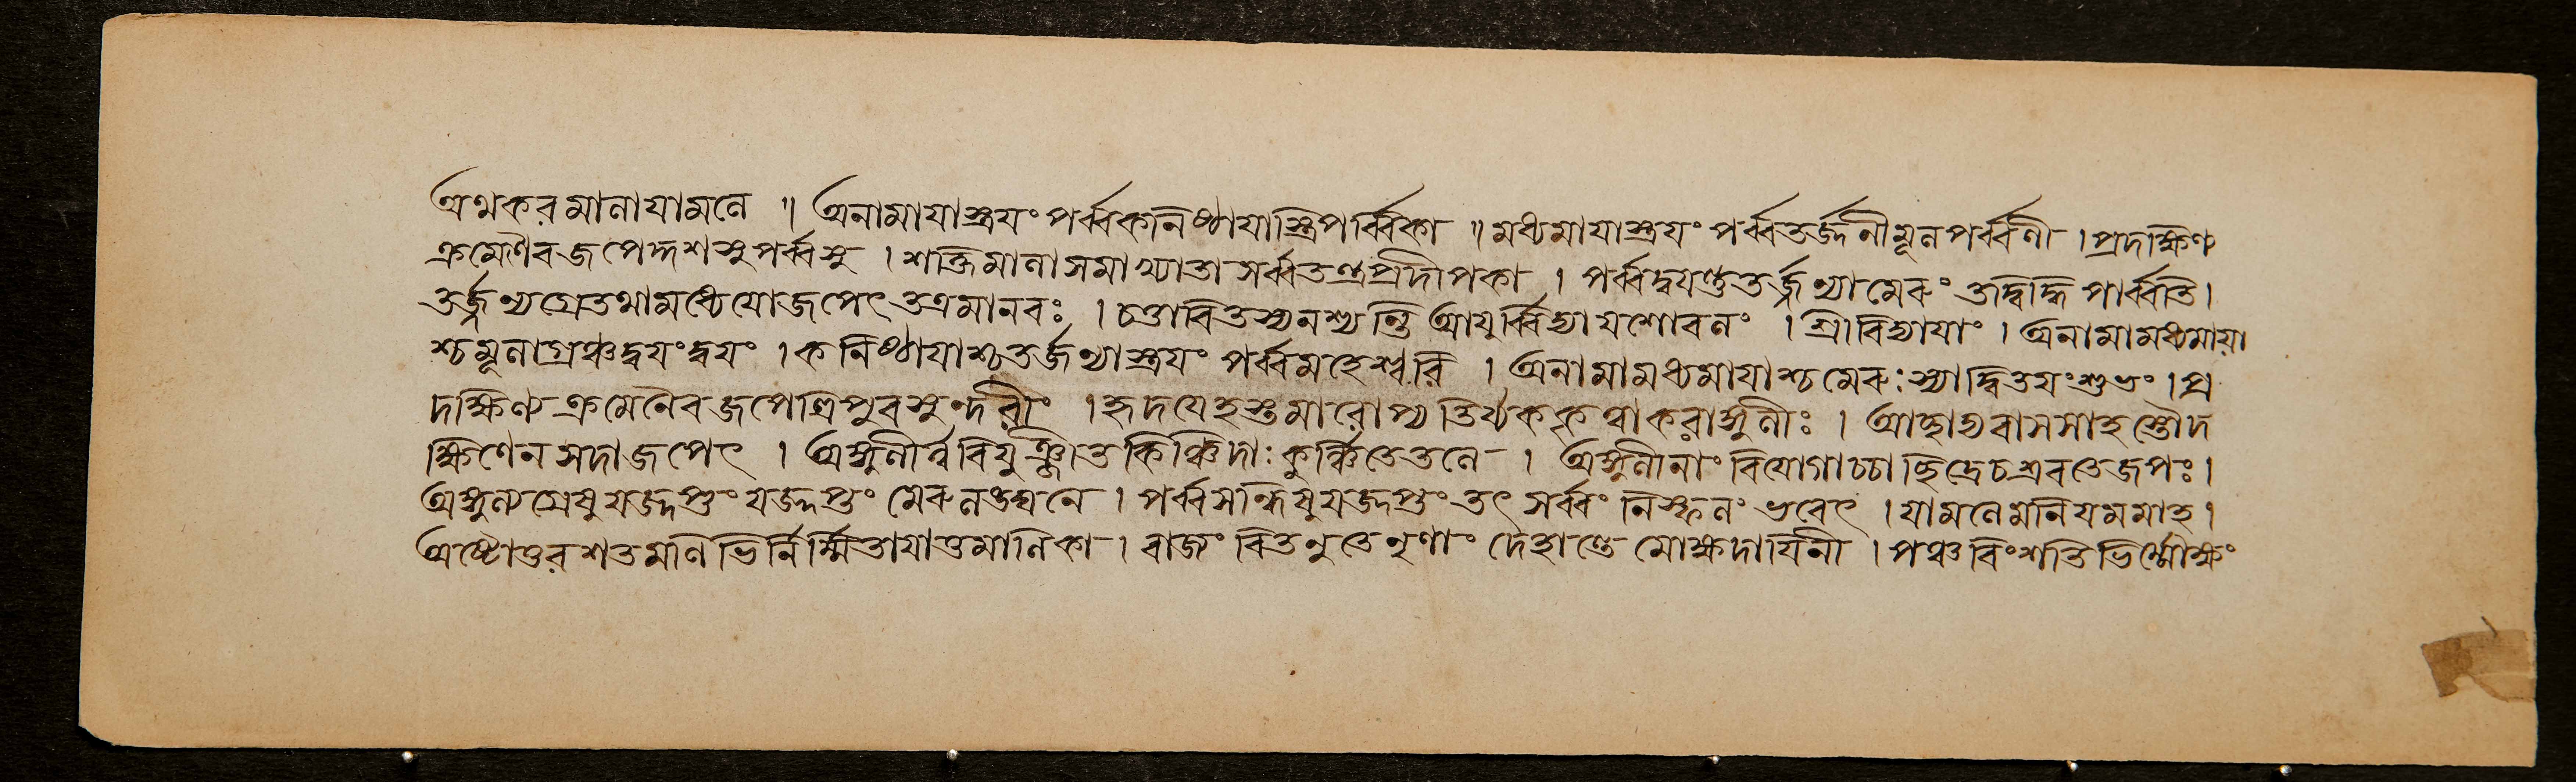 অথকরমালাযামলে ॥ অনামাযাস্ত্রযং পর্ব্বকনিষ্ঠাযাস্ত্রিপর্ব্বিকা ॥ মধ্যমাযাস্ত্রযং পর্ব্বতর্জ্জনীমূলপর্ব্বণী । প্রদক্ষিণ
ক্রমেণৈবজপেদ্দশসুপর্ব্বসু । শক্তিমালাসমাখ্যাতাসর্ব্বতন্ত্রপ্রদীপিকা । পর্ব্বদ্বযন্তুতর্জ্জন্যামেরুং তদ্বিদ্ধি পার্ব্বতি ।
তর্জ্জন্যগ্রেতথামধ্যেযোজপেৎ তত্রমানবঃ । চত্বারিতস্যনশ্যন্তি আযুর্ব্বিদ্যাযশোবলং । শ্রীবিদ্যাযাং । অনামামধ্যমাযা
শ্চমূলাগ্রঞ্চদ্বযংদ্বযং । কনিষ্ঠাযাশ্চতর্জ্জন্যাস্ত্রযং পর্ব্বমহেশ্বরি । অনামামধ্যমাযাশ্চমেরুঃস্যাদ্দ্বিতযংশুভং । প্র
দক্ষিণক্রমেনৈবজপেত্ত্রিপুরসুন্দরীং । হৃদযেহস্তমারোপ্য তির্য্যককৃত্বাকরাঙ্গুলীঃ । আচ্ছাদ্যবাসসাহস্তৌদ
ক্ষিণেনসদাজপেৎ । অঙ্গুলীর্ন্নবিযুঞ্জীতকিঞ্চিদাঃকুঞ্চিতেতলে । অঙ্গুলীনাং বিযোগাচ্চাছিদ্রেচশ্রবতেজপঃ ।
অঙ্গুল্যগ্রেষুযজ্জপ্তং যজ্জপ্তং মেরুলঙ্ঘনে । পর্ব্বসন্ধিষুযজ্জপ্তং তৎ সর্ব্বং নিস্ফলং ভবেৎ । যামলেমনিযমমাহ ।
অষ্টোত্তরশতমণিভির্নির্ম্মিতাযাতুমালিকা । রাজ্যং বিতনুতেনৃণাং দেহান্তে মোক্ষদাযিনী । পঞ্চবিংশতিভির্ম্মোক্ষং